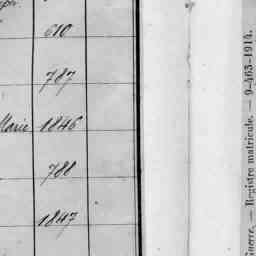 610
787
Marie 1846
788
1847
Guerre. — Registre matricule. — 9-463-1914.